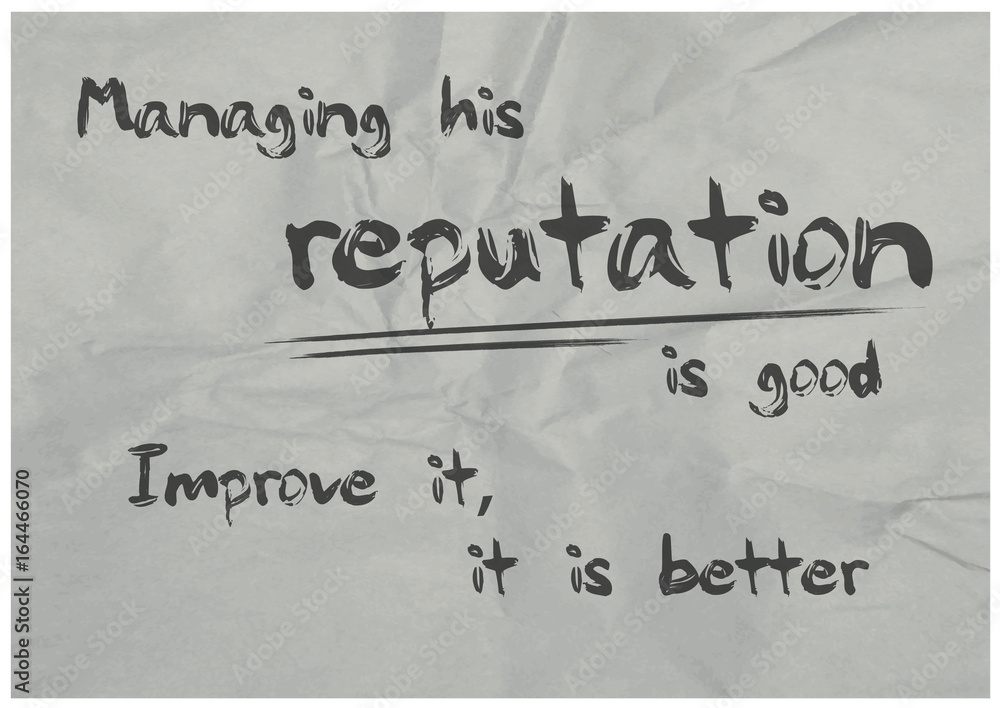 Managing his
reputation
is good
Improve it,
it is better
Adobe Stock | #164466070